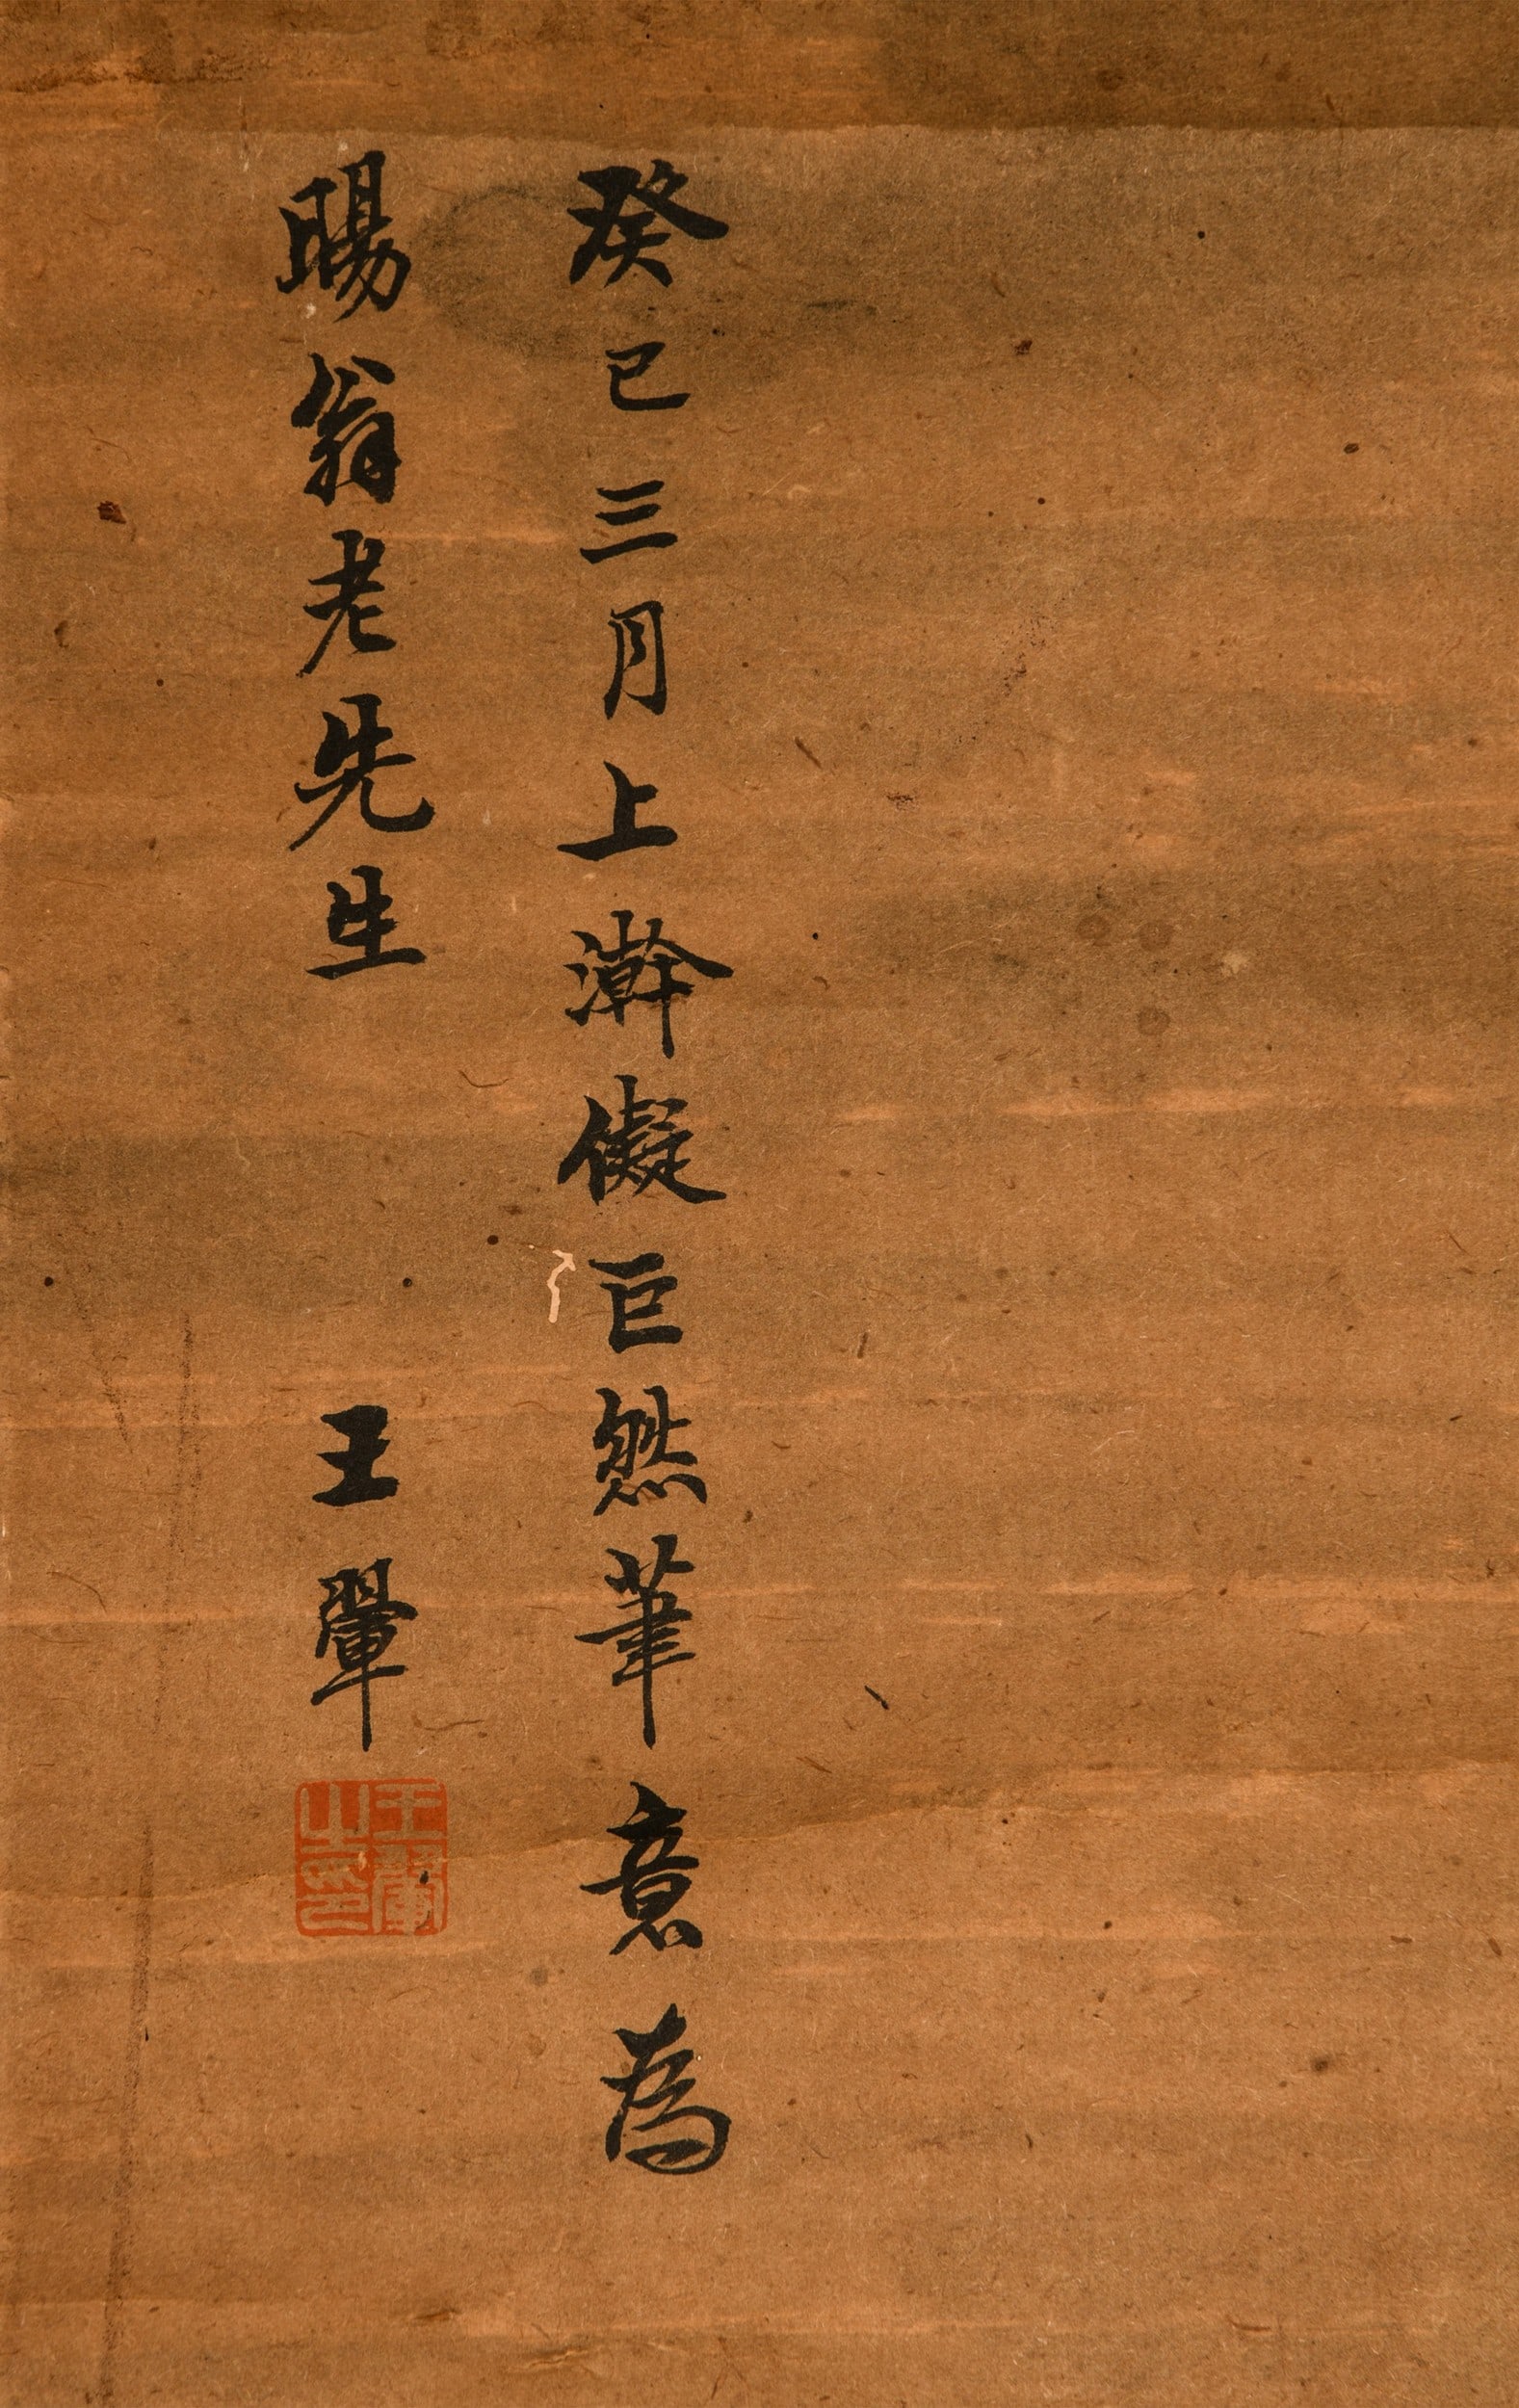 癸巳三月上澣儗巨然筆意為
暘翁老先生 王翬
王翬之印